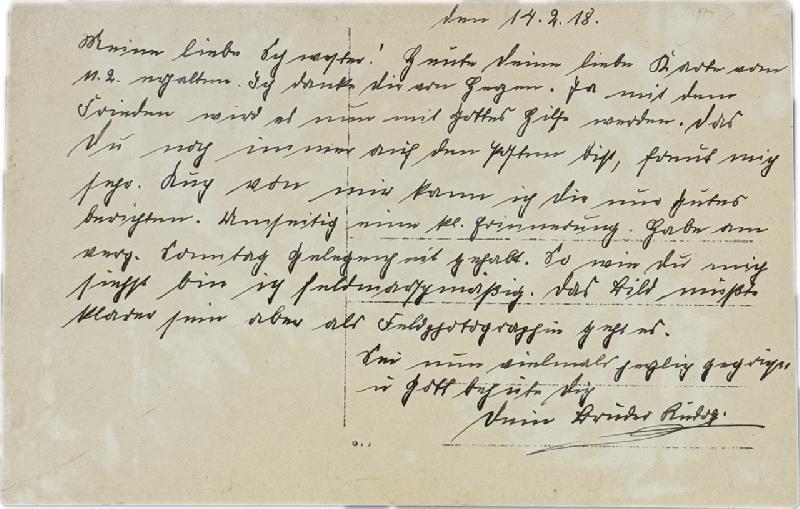 den 14.2.18.
Meine liebe Schwester! Heute Deine liebe Karte vom
11.2. erhalten. Ich danke dir von Herzen. Ja mit dem
Frieden wird es nun mit Gottes Hilfe werden. Das
Du noch immer auf dem Posten bist, freut mich
sehr. Auch von mir kann ich dir nur Gutes
berichten. Umseitig eine kl. Erinnerung. Habe am
verg. Sonntag Gelegenheit gehabt. So wie Du mich
siehst bin ich feldmarschmäßig. Das Bild müßte
klarer sein aber als Feldphotographie geht es.
Sei nun vielmals herzlich gegrüßt
u Gott behüte Dich
Dein Bruder